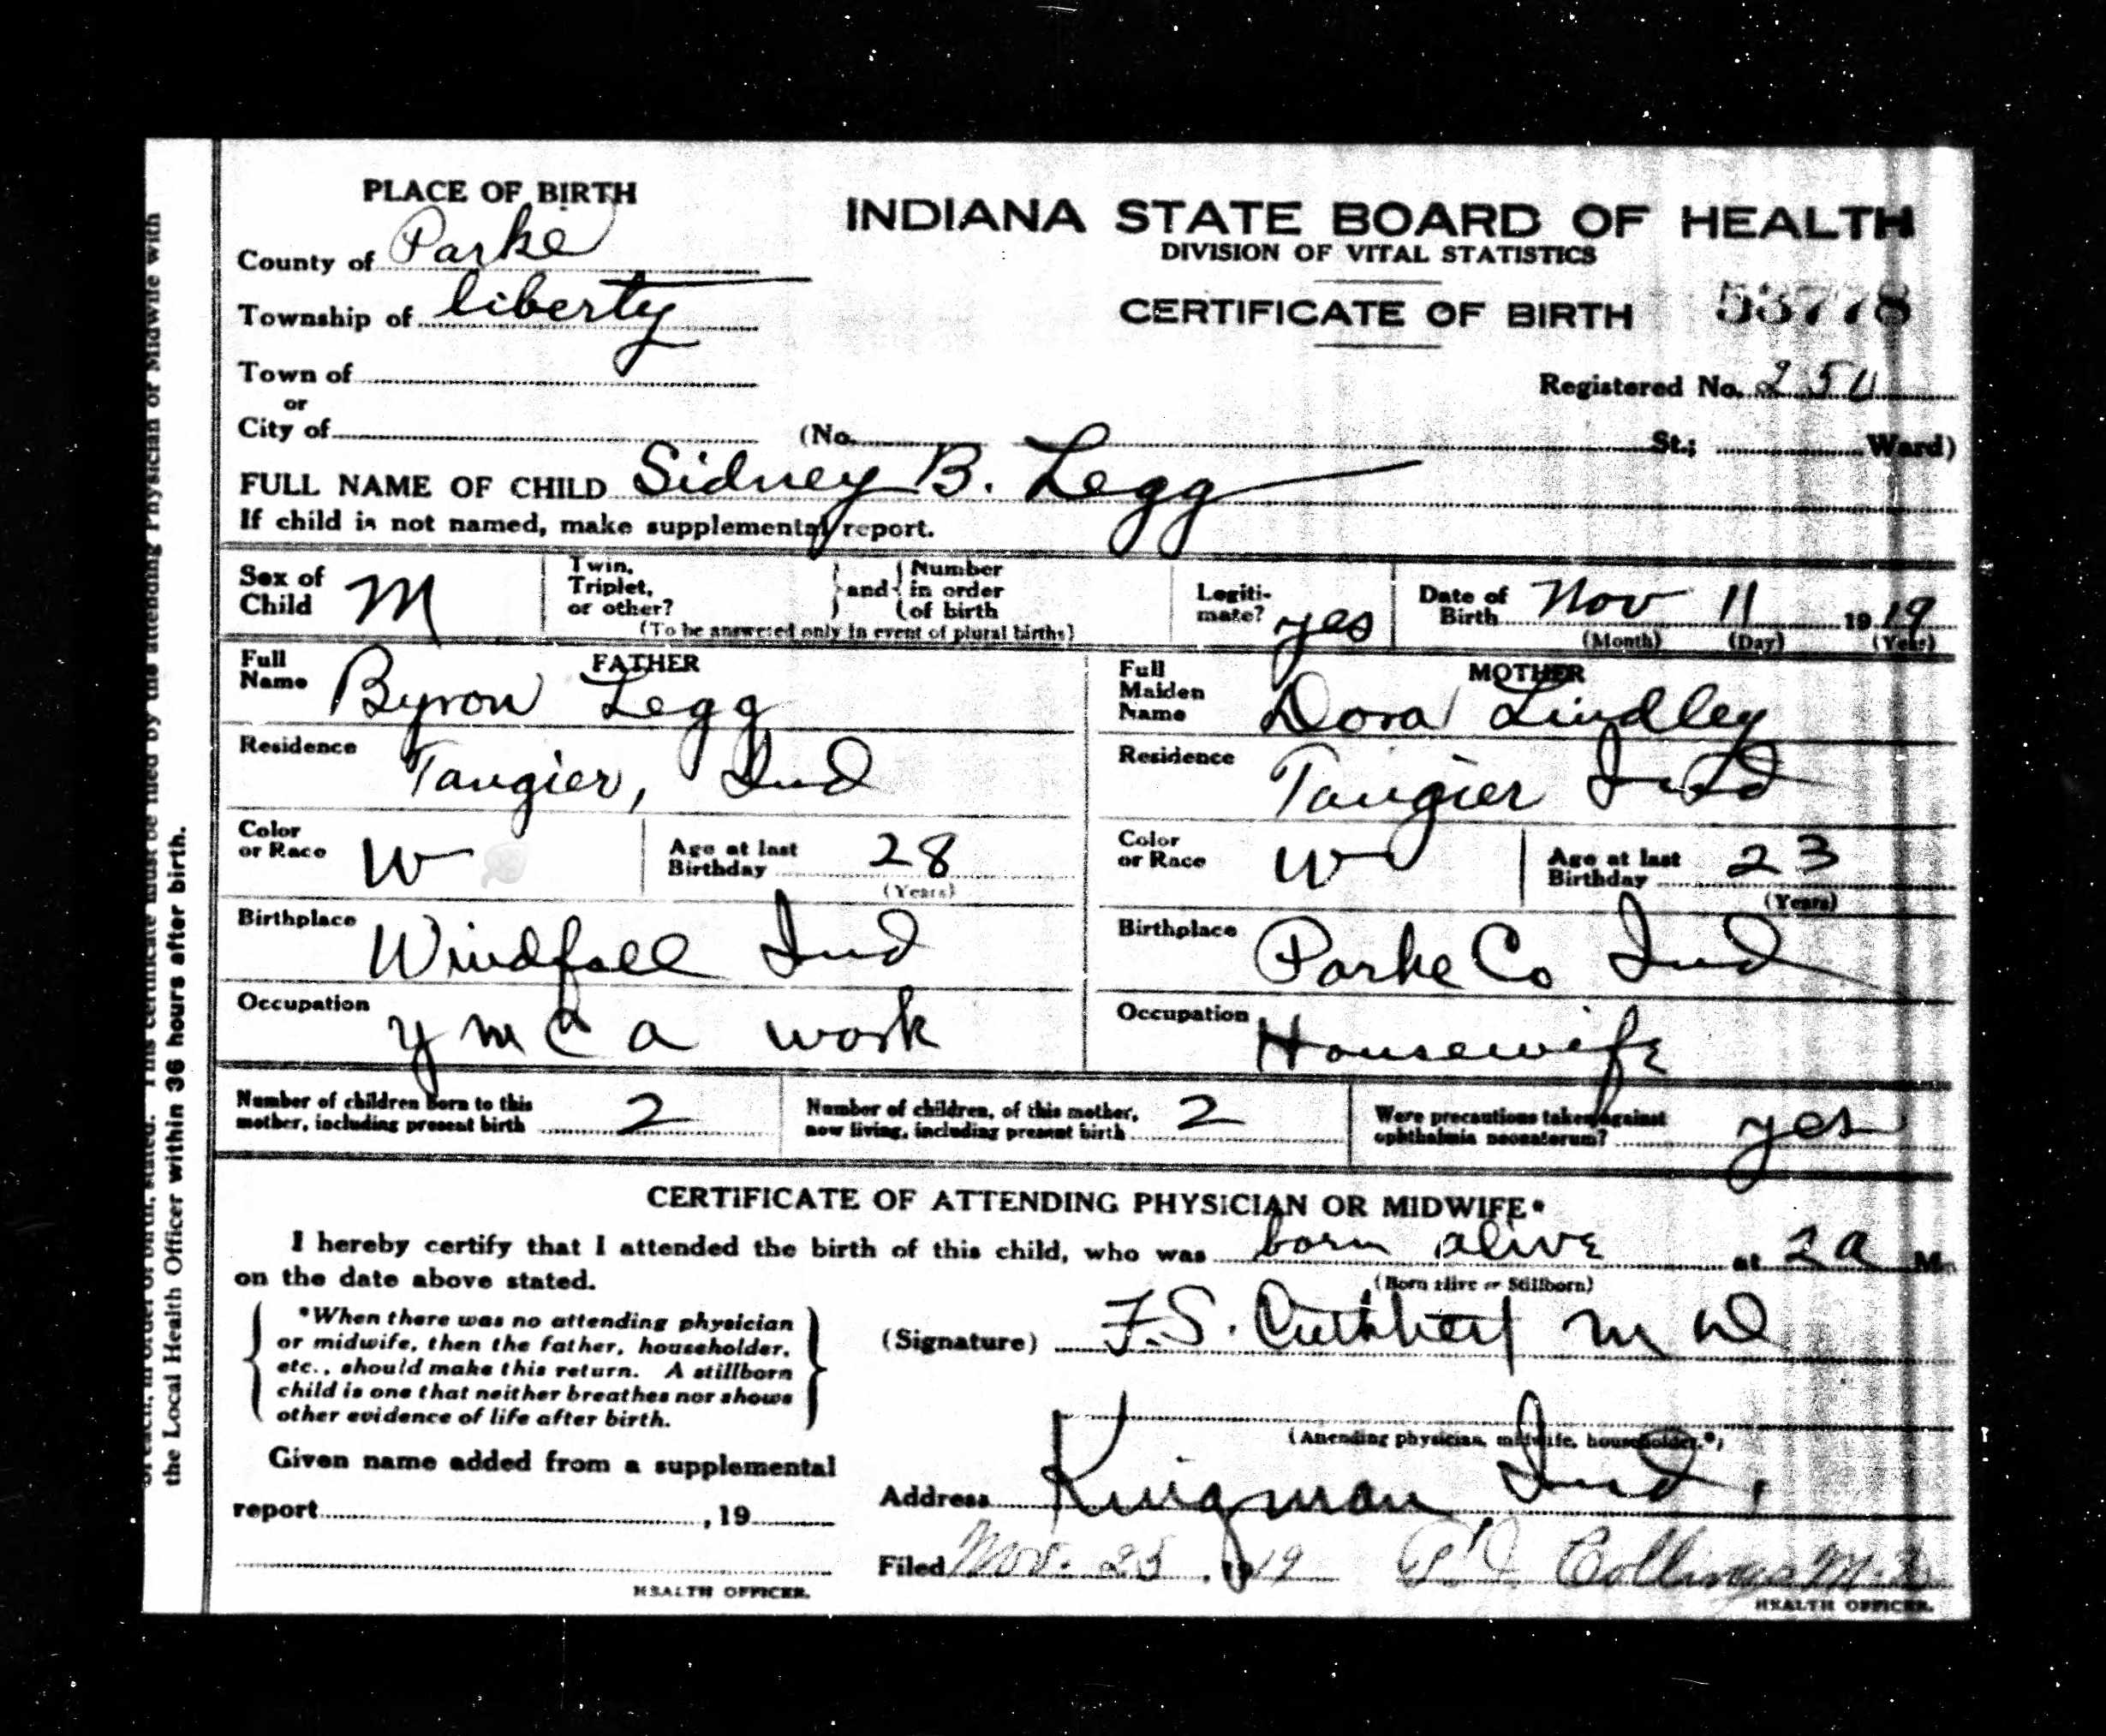 PLACE OF BIRTH
County of Parke
Township of liberty
Town of
or
City of (No. St.; Ward)
INDIANA STATE BOARD OF HEALTH
DIVISION OF VITAL STATISTICS
CERTIFICATE OF BIRTH 53778
Registered No.
FULL NAME OF CHILD Sidney B. Legg
If child is not named, make supplemental report.
Sex of Child M
Twin, Triplet, or other? and Number in order of birth
(To be answered only in event of plural births)
Legitimate? yes
Date of Birth Nov 11 1919
(Month) (Day) (Year)
FATHER
Full Name Byron Legg
Residence Tangier, Ind
Color or Race W
Age at last Birthday 28
(Years)
Birthplace Windfall Ind
Occupation YMCA work
MOTHER
Full Maiden Name Dora Lindley
Residence Tangier Ind
Color or Race W
Age at last Birthday 23
(Years)
Birthplace Parke Co Ind
Occupation Housewife
Number of children born to this mother, including present birth 2
Number of children, of this mother, now living, including present birth 2
Were precautions taken against ophthalmia neonatorum? yes
CERTIFICATE OF ATTENDING PHYSICIAN OR MIDWIFE*
I hereby certify that I attended the birth of this child, who was born alive at 2 a M.
on the date above stated. (Born alive or Stillborn)
*When there was no attending physician
or midwife, then the father, householder,
etc., should make this return. A stillborn
child is one that neither breathes nor shows
other evidence of life after birth.
(Signature) F.S. Cuthbert M D
(Attending physician, midwife, householder.*)
Given name added from a supplemental
report , 19
HEALTH OFFICER.
Address Kingman Ind.
Filed Nov. 25, 1919 Collings M.D.
HEALTH OFFICER.
of each, in order of birth, stated. This certificate must be filed by the attending Physician or Midwife with
the Local Health Officer within 36 hours after birth.